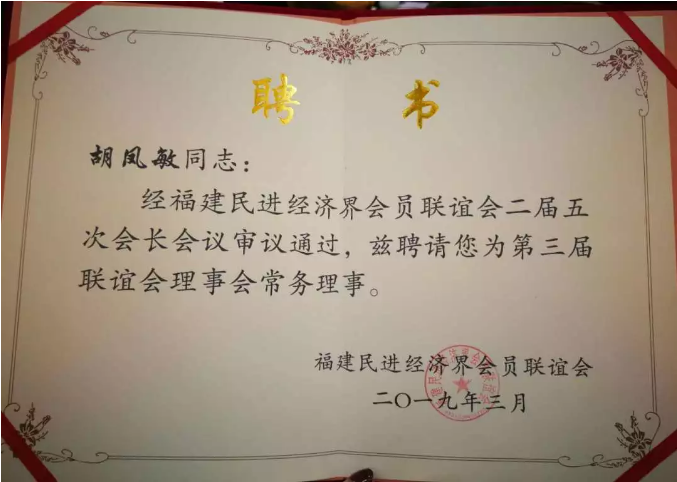 聘书
胡凤敏同志：
经福建民进经济界会员联谊会二届五
次会长会议审议通过，兹聘请您为第三届
联谊会理事会常务理事。
福建民进经济界会员联谊会
二〇一九年三月